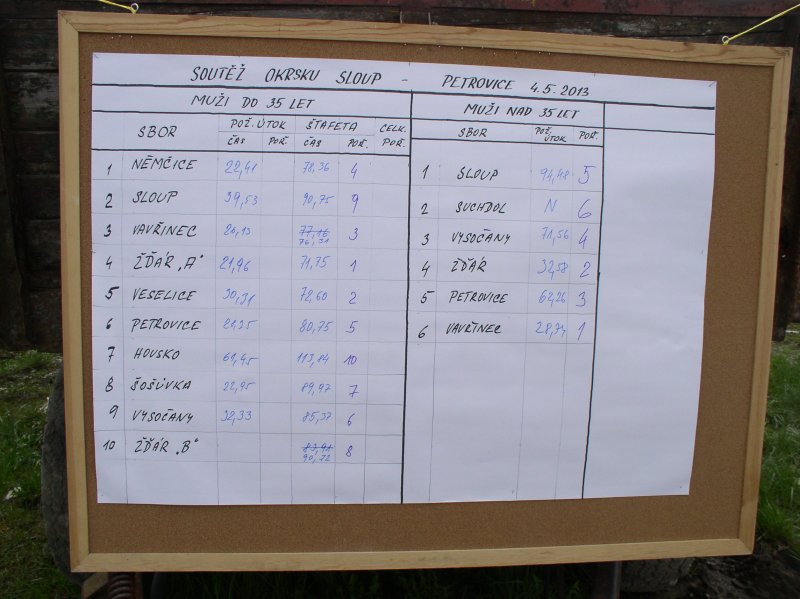 SOUTĚŽ OKRSKU SLOUP - PETROVICE 4.5.2013
MUŽI DO 35 LET
SBOR POŽ. ÚTOK ŠTAFETA CELK. POŘ.
ČAS POŘ. ČAS POŘ.
1 NĚMČICE 22,41 78,36 4
2 SLOUP 39,53 90,75 9
3 VAVŘINEC 26,13 77,16 76,31 3
4 ŽĎÁR „A" 21,96 71,75 1
5 VESELICE 30,31 72,60 2
6 PETROVICE 80,75 5
7 HOUSKO 61,45 113,84 10
8 ŠOŠŮVKA 22,95 89,97 7
9 VYSOČANY 32,33 85,37 6
10 ŽĎÁR „B" 83,91 90,72 8
MUŽI NAD 35 LET
SBOR POŽ. ÚTOK POŘ.
1 SLOUP 94,48 5
2 SUCHDOL N 6
3 VYSOČANY 71,56 4
4 ŽĎÁR 32,58 2
5 PETROVICE 62,26 3
6 VAVŘINEC 28,74 1